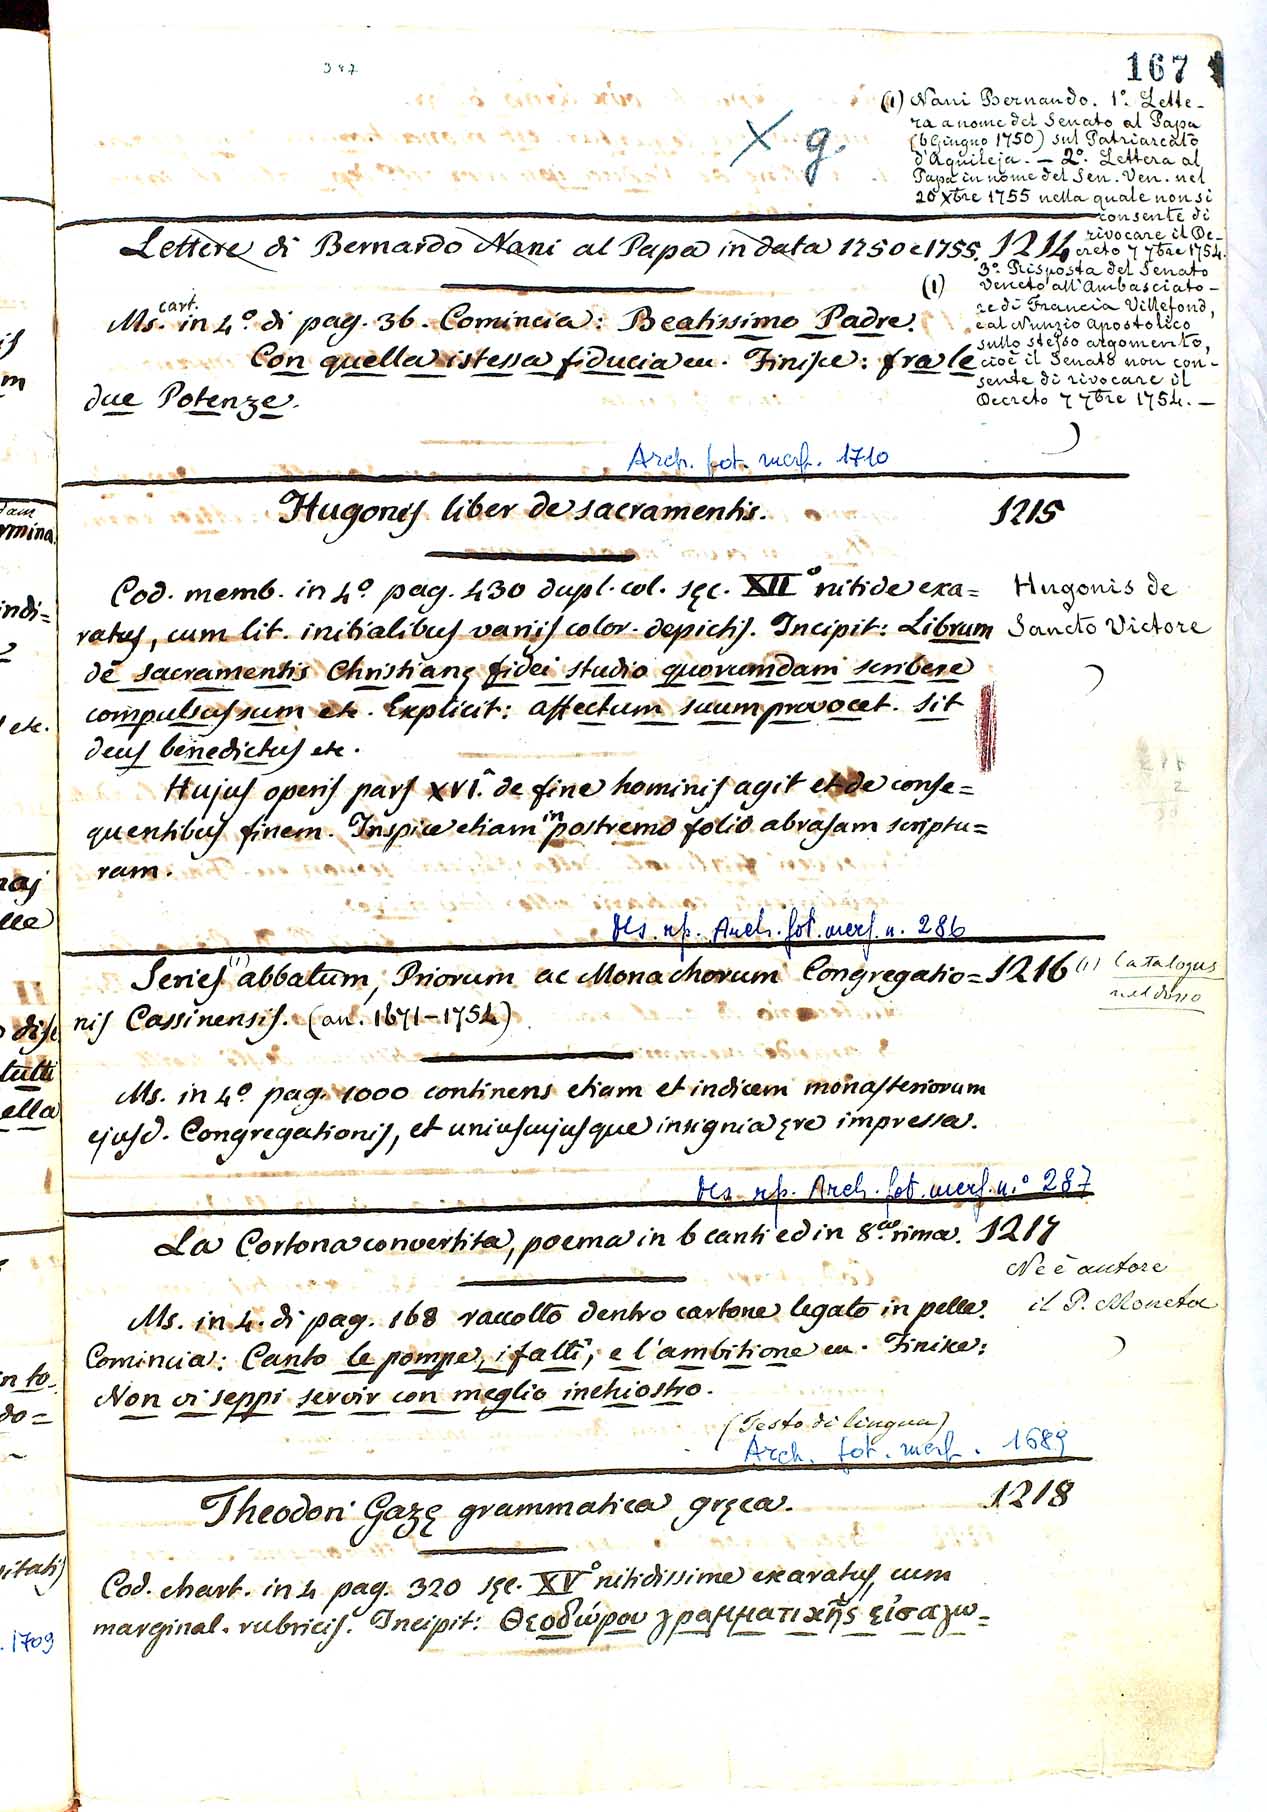 387
167
X g.
(1) Nani Bernardo. 1°. Lette-
ra a nome del Senato al Papa
(6 Giugno 1750) sul Patriarcato
d'Aquileja. — 2°. Lettera al
Papa in nome del Sen. Ven. nel
20 Xbre 1755 nella quale non si
consente di
rivocare il De-
creto 7 7bre 1754.
3°. Risposta del Senato
Veneto all'Ambasciato-
re di Francia Villefond,
e al Nunzio Apostolico
sullo stesso argomento,
cioè il Senato non con-
sente di rivocare il
Decreto 7 7bre 1754. —
Lettere di Bernardo Nani al Papa in data 1750 e 1755. 1214
(1)
Ms. cart. in 4.° di pag. 36. Comincia: Beatissimo Padre.
Con quella istessa fiducia ec. Finisce: fra le
due Potenze.
Arch. fot. merf. 1710
Hugonis liber de sacramentis. 1215
Cod. memb. in 4.° pag. 430 dupl. col. sęc. XII° nitide exa=
ratus, cum lit. initialibus variis color. depictis. Incipit: Librum
de sacramentis Christianę fidei studio quorumdam scribere
compulsus sum etc. Explicit: affectum suum provocet. sit
deus benedictus etc.
Hugonis de
Sancto Victore
Hujus operis pars XVI.a de fine hominis agit et de conse=
quentibus finem. Inspice etiam in postremo folio abrasam scriptu=
ram.
Ms. rip. Arch. fot. merf. n. 286
Series (1) abbatum, Priorum ac Monachorum Congregatio= 1216
nis Cassinensis. (an. 1671-1754)
(1) Catalogus
nel dosso
Ms. in 4.° pag. 1000 continens etiam et indicem monasteriorum
ejusd. Congregationis, et uniuscujusque insignia ęre impressa.
Ms. rip. Arch. fot. merf. n.° 287
La Cortona convertita, poema in 6 canti ed in 8.va rima. 1217
Ne è autore
il P. Moneta
Ms. in 4. di pag. 168 raccolto dentro cartone legato in pelle.
Comincia: Canto le pompe, i falli, e l'ambitione ec. Finisce:
Non vi seppi servir con meglio inchiostro.
(Testo di lingua)
Arch. fot. merf. 1689
Theodori Gazę grammatica gręca. 1218
Cod. chart. in 4 pag. 320 sęc. XV° nitidissime exaratus, cum
marginal. rubricis. Incipit: Θεοδώρου γραμματικῆς εἰσαγω=
1709